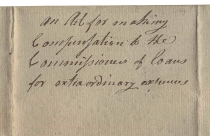 an Act for making
Compensation to the
Commissioners of Loans
for extraordinary expences